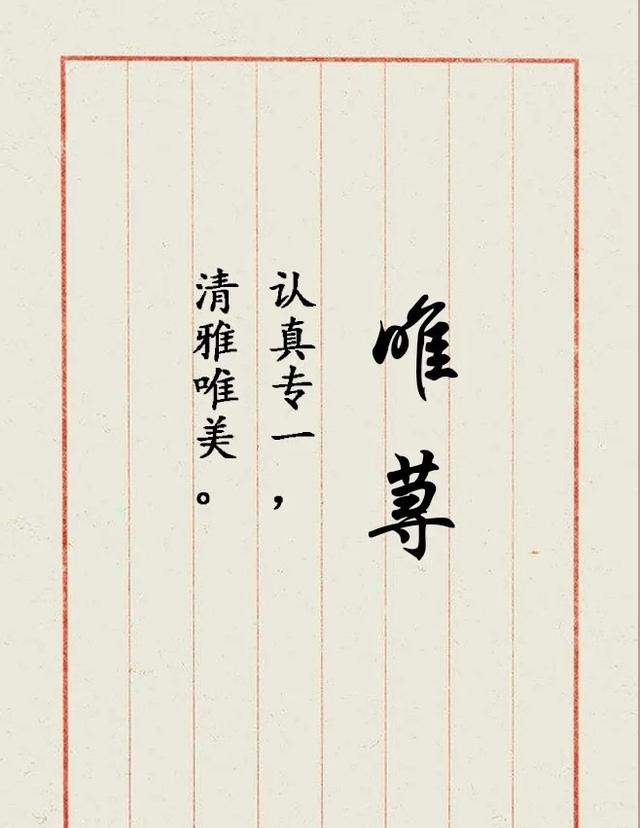 唯荨
认真专一，
清雅唯美。